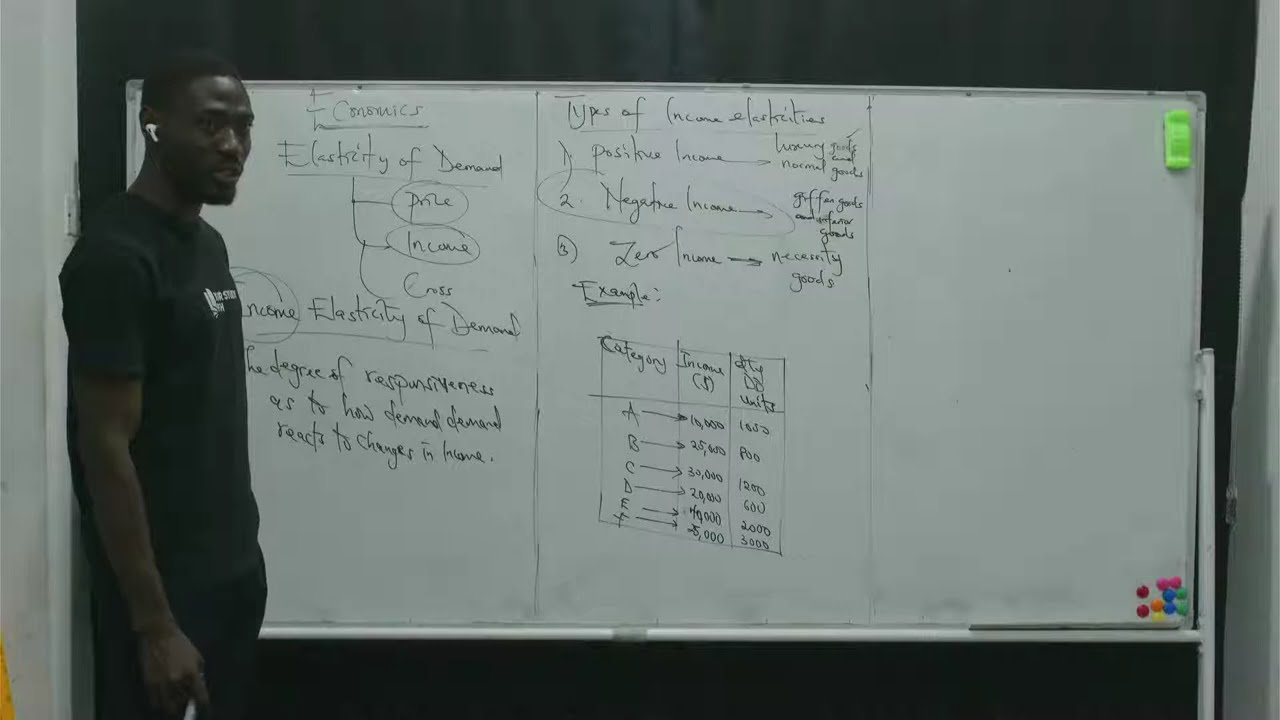 Economics
Elasticity of Demand
Price
Income
Cross
Income Elasticity of Demand
he degree of responsiveness
as to how demand demand
reacts to changes in Income.
Types of Income elasticities
1) Positive Income → luxury goods and
normal goods
2. Negative Income → giffen goods
and inferior
goods
3) Zero Income → necessity
goods
Example:
Category Income ($) Qty DD units
A → 10,000 1000
B → 25,000 800
C → 30,000 1200
D → 20,000 600
E → 40,000 2000
F → 5,000 3000